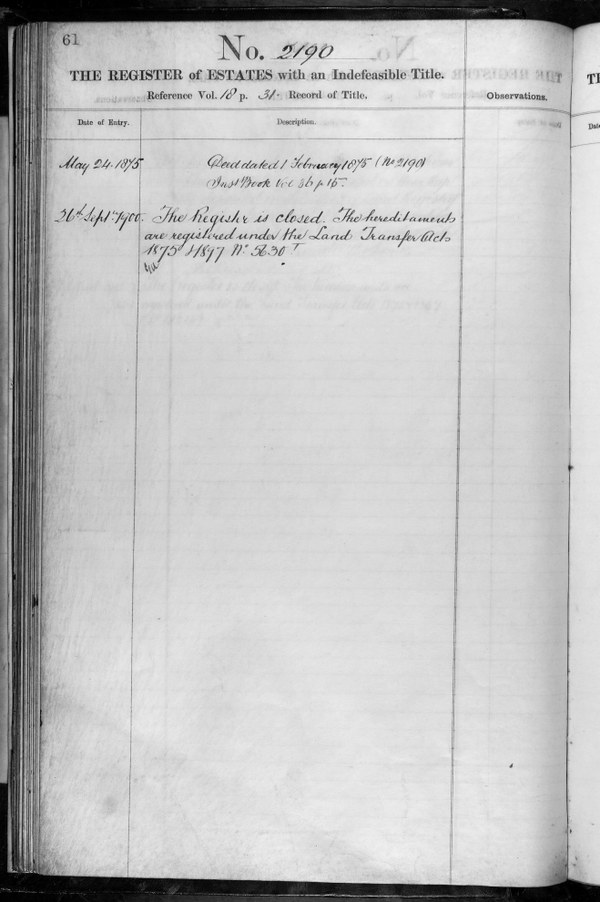 61
No. 2190
THE REGISTER of ESTATES with an Indefeasible Title.
Reference Vol. 18 p. 31. Record of Title.
Observations.
Date of Entry.
Description.
May 24. 1875
Deed dated 1 February 1875 (No 2190)
Inst Book Vol 36 p 15.
26th Sept. 1900.
The Register is closed. The hereditaments
are registered under the Land Transfer Acts
1875 & 1897 No.